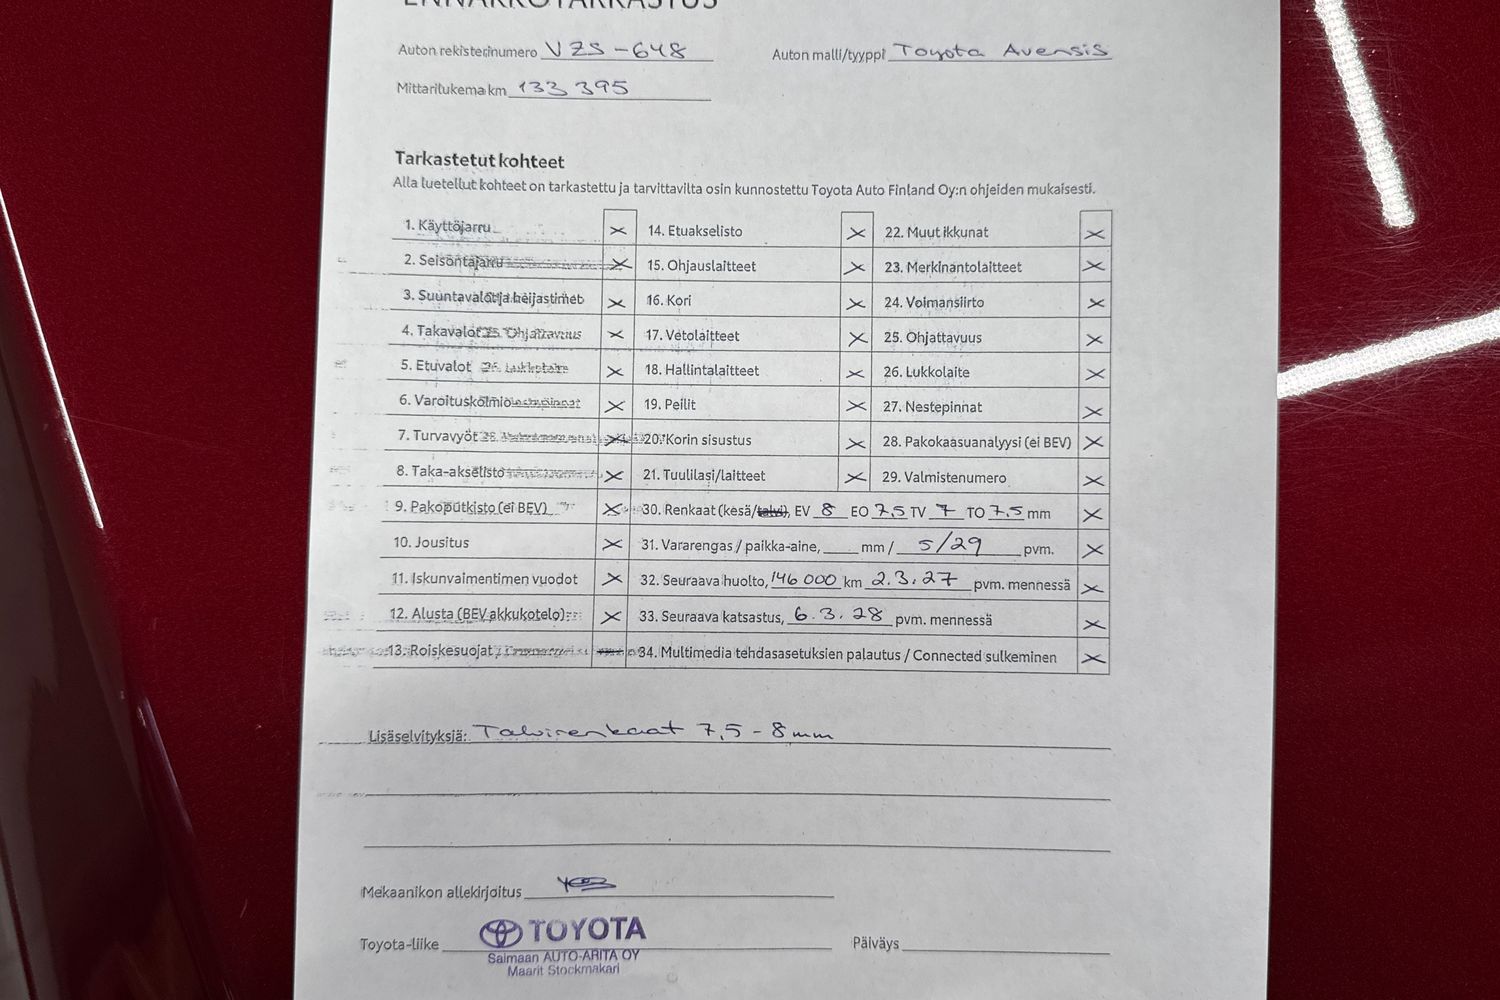 ENNAKKOTARKASTUS
Auton rekisterinumero VZS-648 Auton malli/tyyppi Toyota Avensis
Mittarilukema km 133 395
Tarkastetut kohteet
Alla luetellut kohteet on tarkastettu ja tarvittavilta osin kunnostettu Toyota Auto Finland Oy:n ohjeiden mukaisesti.
1. Käyttöjarru X 14. Etuakselisto X 22. Muut ikkunat X
2. Seisontajarru X 15. Ohjauslaitteet X 23. Merkinantolaitteet X
3. Suuntavalot ja heijastimet X 16. Kori X 24. Voimansiirto X
4. Takavalot 25. Ohjattavuus X 17. Vetolaitteet X 25. Ohjattavuus X
5. Etuvalot 26. Lukkolaite X 18. Hallintalaitteet X 26. Lukkolaite X
6. Varoituskolmio X 19. Peilit X 27. Nestepinnat X
7. Turvavyöt X 20. Korin sisustus X 28. Pakokaasuanalyysi (ei BEV) X
8. Taka-akselisto X 21. Tuulilasi/laitteet X 29. Valmistenumero X
9. Pakoputkisto (ei BEV) X 30. Renkaat (kesä/talvi), EV 8 EO 7,5 TV 7 TO 7,5 mm X
10. Jousitus X 31. Vararengas / paikka-aine, ____ mm / 5/29 pvm. X
11. Iskunvaimentimen vuodot X 32. Seuraava huolto, 146 000 km 2.3.27 pvm. mennessä X
12. Alusta (BEV akkukotelo) X 33. Seuraava katsastus, 6.3.28 pvm. mennessä X
13. Roiskesuojat 34. Multimedia tehdasasetuksien palautus / Connected sulkeminen X
Lisäselvityksiä: Talvirenkaat 7,5 - 8 mm
Mekaanikon allekirjoitus
Toyota-liike TOYOTA Päiväys
Saimaan AUTO-ARITA OY
Maarit Stockmakari